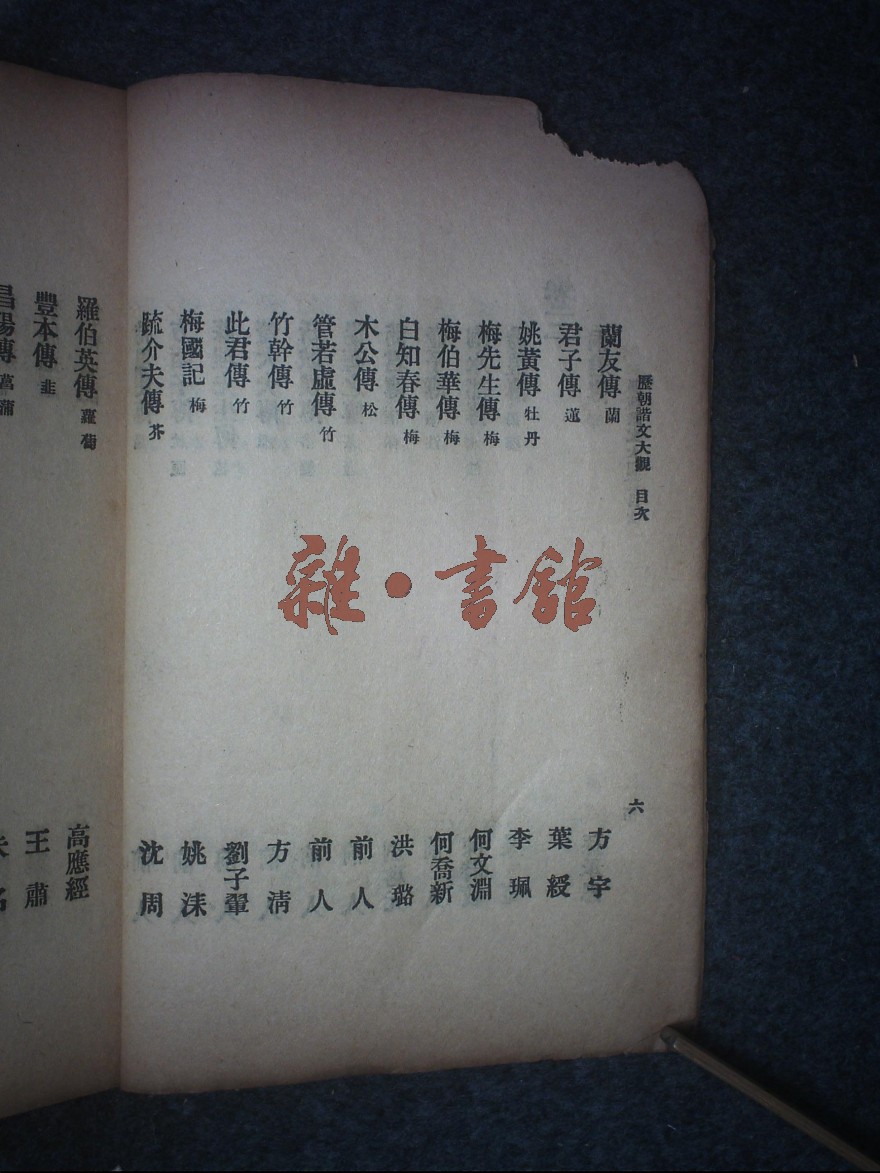 歷朝諧文大觀 目次 六
蘭友傳 蘭 方宇
君子傳 蓮 葉綬
姚黃傳 牡丹 李珮
梅先生傳 梅 何文淵
梅伯華傳 梅 何喬新
白知春傳 梅 洪璐
木公傳 松 前人
管若虛傳 竹 前人
竹幹傳 竹 方清
此君傳 竹 劉子翬
梅國記 梅 姚淶
疏介夫傳 芥 沈周
羅伯英傳 蘿蔔 高應經
豐本傳 韭 王肅
昌陽傳 菖蒲
雜•書館